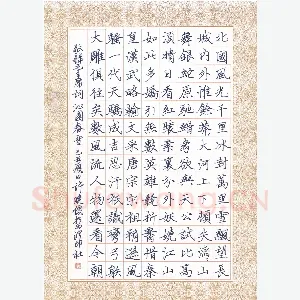 北國風光千里冰封萬里雪飄望長
城內外惟餘莽莽大河上下頓失滔滔山
舞銀蛇原馳蠟象欲與天公試比高
須晴日看紅裝素裹分外妖嬈江山
如此多嬌引無數英雄競折腰惜秦
皇漢武略輸文采唐宗宋祖稍遜風
騷一代天驕成吉思汗祇識彎弓射
大雕俱往矣數風流人物還看今朝
毛主席詞沁園春雪己丑夏日